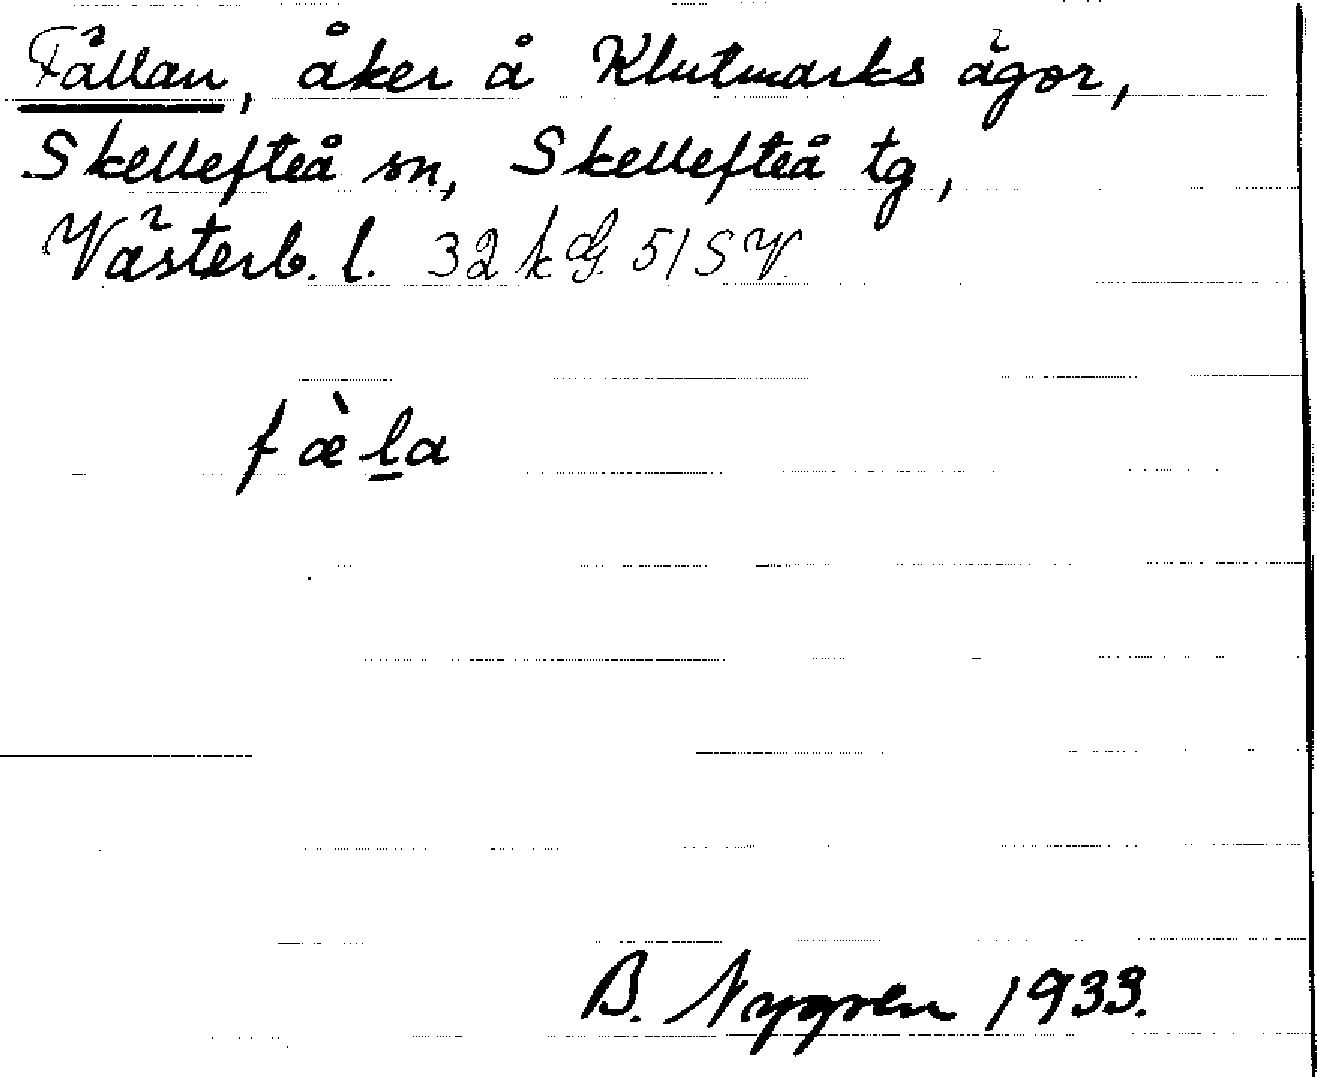 Fällan, åker å Klutmarks ägor,
Skellefteå sn, Skellefteå tg,
Västerb. l. 32 k G. 51 SV.
fæ̀l̠a
B. Nygren 1933.